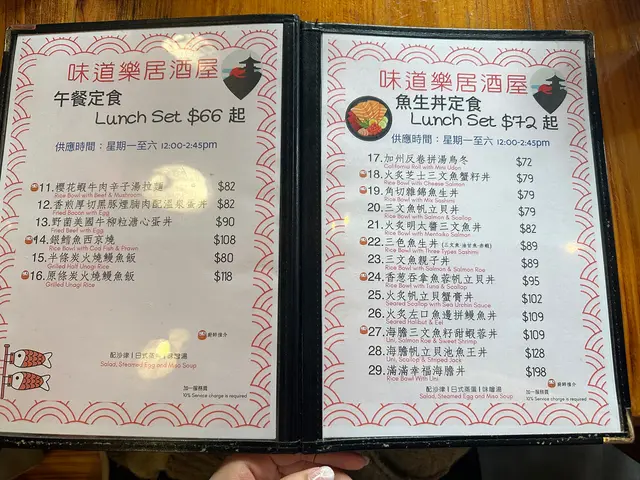 味道樂居酒屋
午餐定食
Lunch Set $66 起
供應時間：星期一至六 12:00-2:45pm
11.櫻花蝦牛肉辛子湯拉麵 $82
Rice Bowl with Beef & Mushroom
12.香煎厚切黑豚煙腩肉配溫泉蛋丼 $82
Fried Bacon with Egg
13.野菌美國牛柳粒溏心蛋丼 $90
Fried Beef with Egg
14.銀鱈魚西京燒 $108
Rice Bowl with Cod Fish & Prawn
15.半條炭火燒鰻魚飯 $80
Grilled Half Unagi Rice
16.原條炭火燒鰻魚飯 $118
Grilled Unagi Rice
廚師推介
配沙律 | 日式蒸蛋 | 味噌湯
Salad, Steamed Egg and Miso Soup
加一服務費
10% Service charge is required
味道樂居酒屋
魚生丼定食
Lunch Set $72 起
供應時間：星期一至六 12:00-2:45pm
17.加州反卷拼湯烏冬 $72
California Roll with Mini Udon
18.火炙芝士三文魚蟹籽丼 $79
Rice Bowl with Cheese Salmon
19.角切雜錦魚生丼 $79
Rice Bowl with Mix Sashimi
20.三文魚帆立貝丼 $79
Rice Bowl with Salmon & Scallop
21.火炙明太醬三文魚丼 $82
Rice Bowl with Mentaiko Salmon
22.三色魚生丼 (三文魚·油甘魚·赤蝦) $89
Rice Bowl with Three Types Sashimi
23.三文魚親子丼 $89
Rice Bowl with Salmon & Salmon Roe
24.香蔥吞拿魚蓉帆立貝丼 $95
Rice Bowl with Tuna & Scallop
25.火炙帆立貝蟹膏丼 $102
Seared Scallop with Sea Urchin Sauce
26.火炙左口魚邊拼鰻魚丼 $109
Seared Halibut & Eel
27.海膽三文魚籽甜蝦蓉丼 $109
Uni, Salmon Roe & Sweet Shrimp
28.海膽帆立貝池魚王丼 $128
Uni, Scallop & Striped Jack
29.滿滿幸福海膽丼 $198
Rice Bowl With Uni
廚師推介
配沙律 | 日式蒸蛋 | 味噌湯
Salad, Steamed Egg and Miso Soup
加一服務費
10% Service charge is required